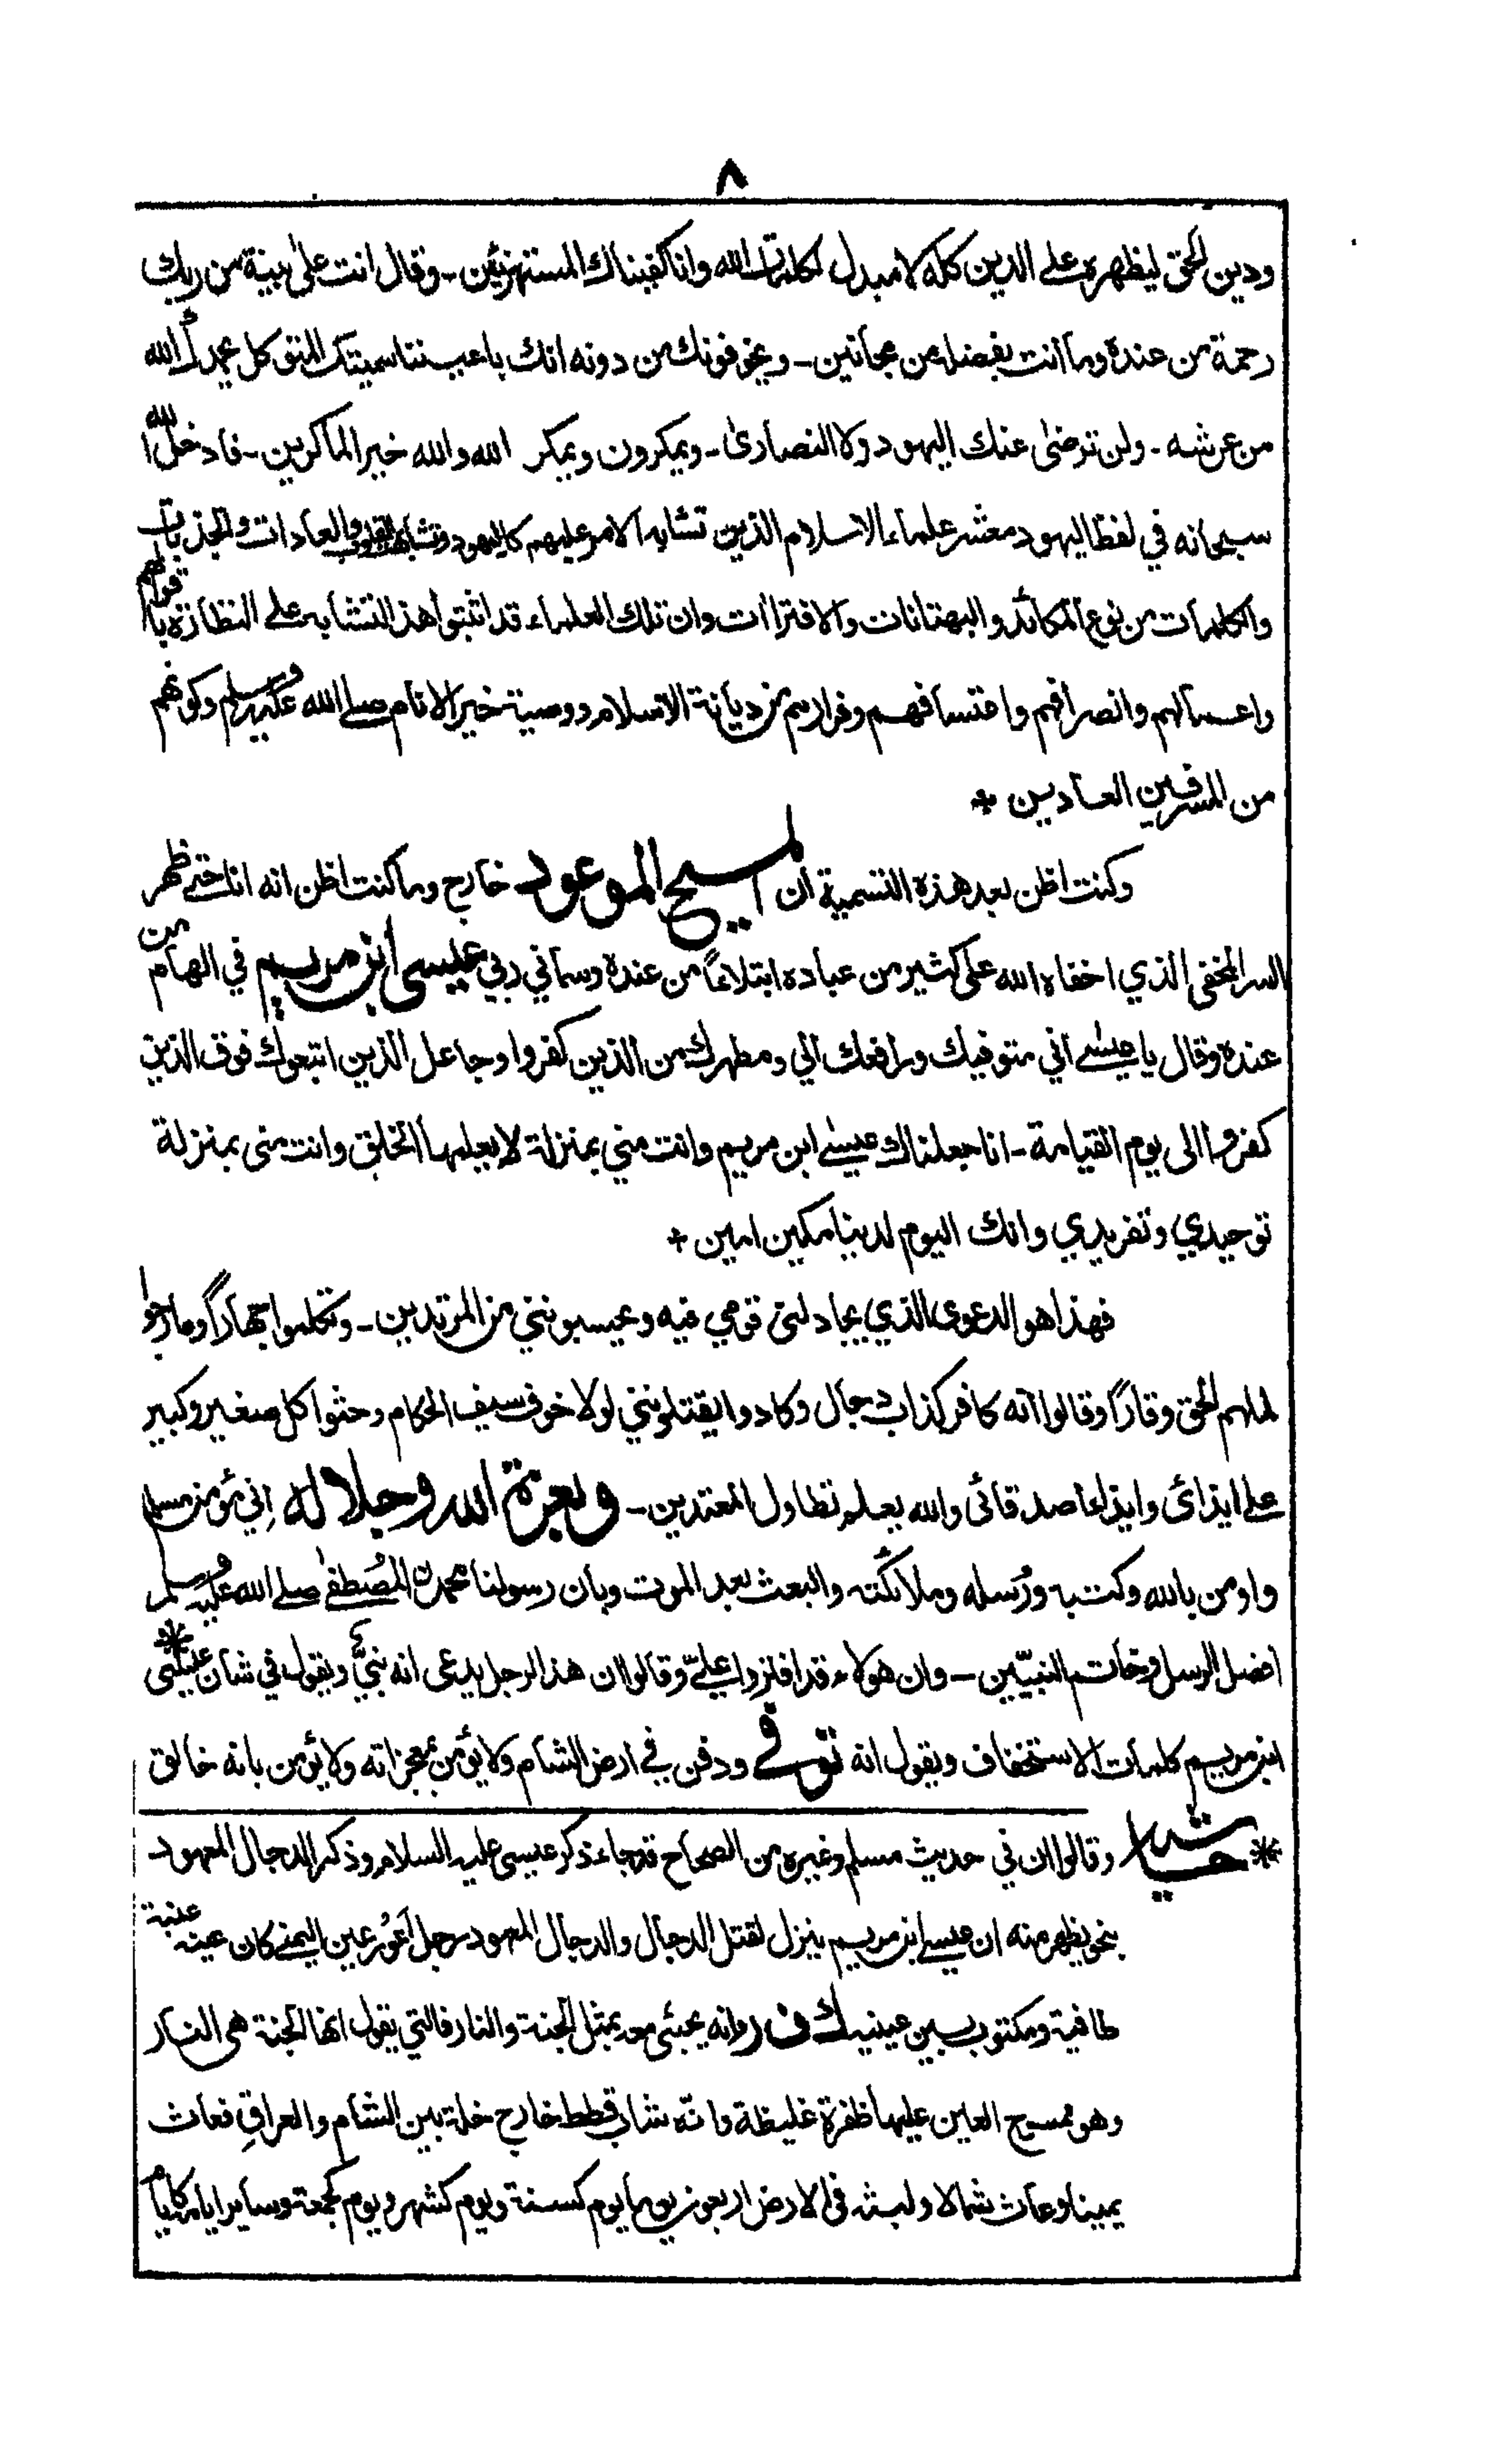 ٨
ودين الحق ليظهره على الدين كله لا مبدل لكلمات الله وانا كفيناك المستهزئين - وقال انت على بينة من ربك
رحمة من عنده وما انت بفضله من مجانين - ويخوفونك من دونه انك باعيننا سميتك المتوكل يحمدك الله
من عرشه - ولن ترضى عنك اليهود ولا النصارى - ويمكرون ويمكر الله والله خير الماكرين - فادخل الله
سبحانه في لفظ اليهود معشر علماء الاسلام الذين تشابه الامر عليهم كاليهود وتشابهت القلوب والعادات والجذبات
والكلمات من نوع المكائد والبهتانات والافتراءات وان تلك العلماء قد اثبتوا هذا التشابه على النظارة باقوالهم
واعمالهم وانصرافهم واعتسافهم وفرارهم من ديانة الاسلام ووصية خير الانام صلى الله عليه وسلم وكونهم
من المسرفين العادين *
وكنت اظن بعد هذه التسمية ان المسيح الموعود خارج وما كنت اظن انه انا حتى ظهر
السر المخفي الذي اخفاه الله على كثير من عباده ابتلاءً من عنده وسماني ربي عيسى ابن مريم في الهام من
عنده وقال يا عيسى اني متوفيك ورافعك الي ومطهرك من الذين كفروا وجاعل الذين اتبعوك فوق الذين
كفروا الى يوم القيامة - انا جعلناك عيسى ابن مريم وانت مني بمنزلة لا يعلمها الخلق وانت مني بمنزلة
توحيدي وتفريدي وانك اليوم لدينا مكين امين *
فهذا هو الدعوى الذي يجادلني قومي فيه ويحسبونني من المرتدين - وتكلموا جهارًا وما رجوا
لملهم الحق وقارًا وقالوا انه كافر كذاب دجال وكادوا يقتلونني لولا خوف سيف الحكام وحثوا كل صغير وكبير
على ايذائي وايذاء اصدقائي والله يعلم تطاول المعتدين - وبعزة الله وجلاله اني مؤمن مسلم
واومن بالله وكتبه ورسله وملائكته والبعث بعد الموت وبان رسولنا محمد المصطفى صلى الله عليه وسلم
افضل الرسل وخاتم النبيّين - وان هؤلاء قد افتروا عليّ وقالوا ان هذا الرجل يدعى انه نبيّ ويقول في شأن عيسى*
ابن مريم كلمات الاستخفاف ويقول انه توفي ودفن في ارض الشام ولا يؤمن بمعجزاته ولا يؤمن بانه خالق
* حاشية وقالوا ان في حديث مسلم وغيره من الصحاح قد جاء ذكر عيسى عليه السلام وذكر الدجال المعهود
بنحو يظهر منه ان عيسى ابن مريم ينزل لقتل الدجال والدجال المعهود رجل اعور عين اليمنى كان عينه عنبة
طافية ومكتوب بين عينيه ك ف ر وانه يجئ معه بمثل الجنة والنار فالتي يقول انها الجنة هي النار
وهو ممسوح العين عليها ظفرة غليظة وانه شاب قطط خارج خلة بين الشام والعراق فعاث
يمينا وعاث شمالا ولبثه في الارض اربعون يوما يوم كسنة ويوم كشهر ويوم كجمعة وسائر ايامه كايام